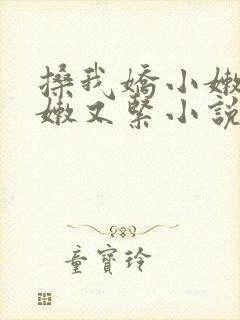 搡我嬌小嫩
嫩又緊小說
童寶玲